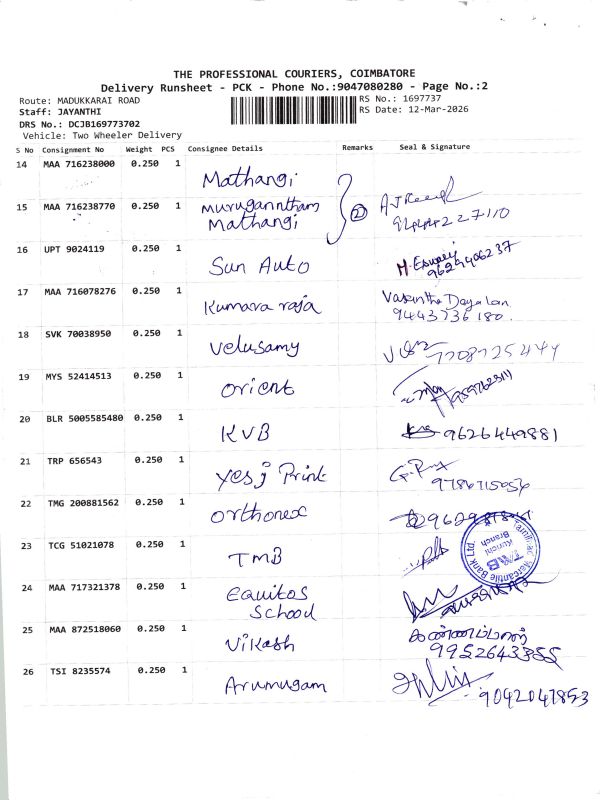 THE PROFESSIONAL COURIERS, COIMBATORE
Delivery Runsheet - PCK - Phone No.:9047080280 - Page No.:2
Route: MADUKKARAI ROAD
RS No.: 1697737
Staff: JAYANTHI
RS Date: 12-Mar-2026
DRS No.: DCJB169773702
Vehicle: Two Wheeler Delivery
S No Consignment No Weight PCS Consignee Details Remarks Seal & Signature
14 MAA 716238000 0.250 1 Mathangi
15 MAA 716238770 0.250 1 Muruganntham
Mathangi 2 92444227110
16 UPT 9024119 0.250 1 Sun Auto
9629406237
17 MAA 716078276 0.250 1 Kumara raja Vasantha Dayalan
9443736180.
18 SVK 70038950 0.250 1 Velusamy 7708725444
19 MYS 52414513 0.250 1 Orient
20 BLR 5005585480 0.250 1 KVB 9626449881
21 TRP 656543 0.250 1 Yes j Print
9786715056
22 TMG 200881562 0.250 1 Orthonex
23 TCG 51021078 0.250 1 TMB
Tamilnad Mercantile Bank Ltd.
TMB
Kurichi
Branch
24 MAA 717321378 0.250 1 Equitos
School
25 MAA 872518060 0.250 1 Vikash கண்ணப்பன்
9952643355
26 TSI 8235574 0.250 1 Arumugam
9092047853